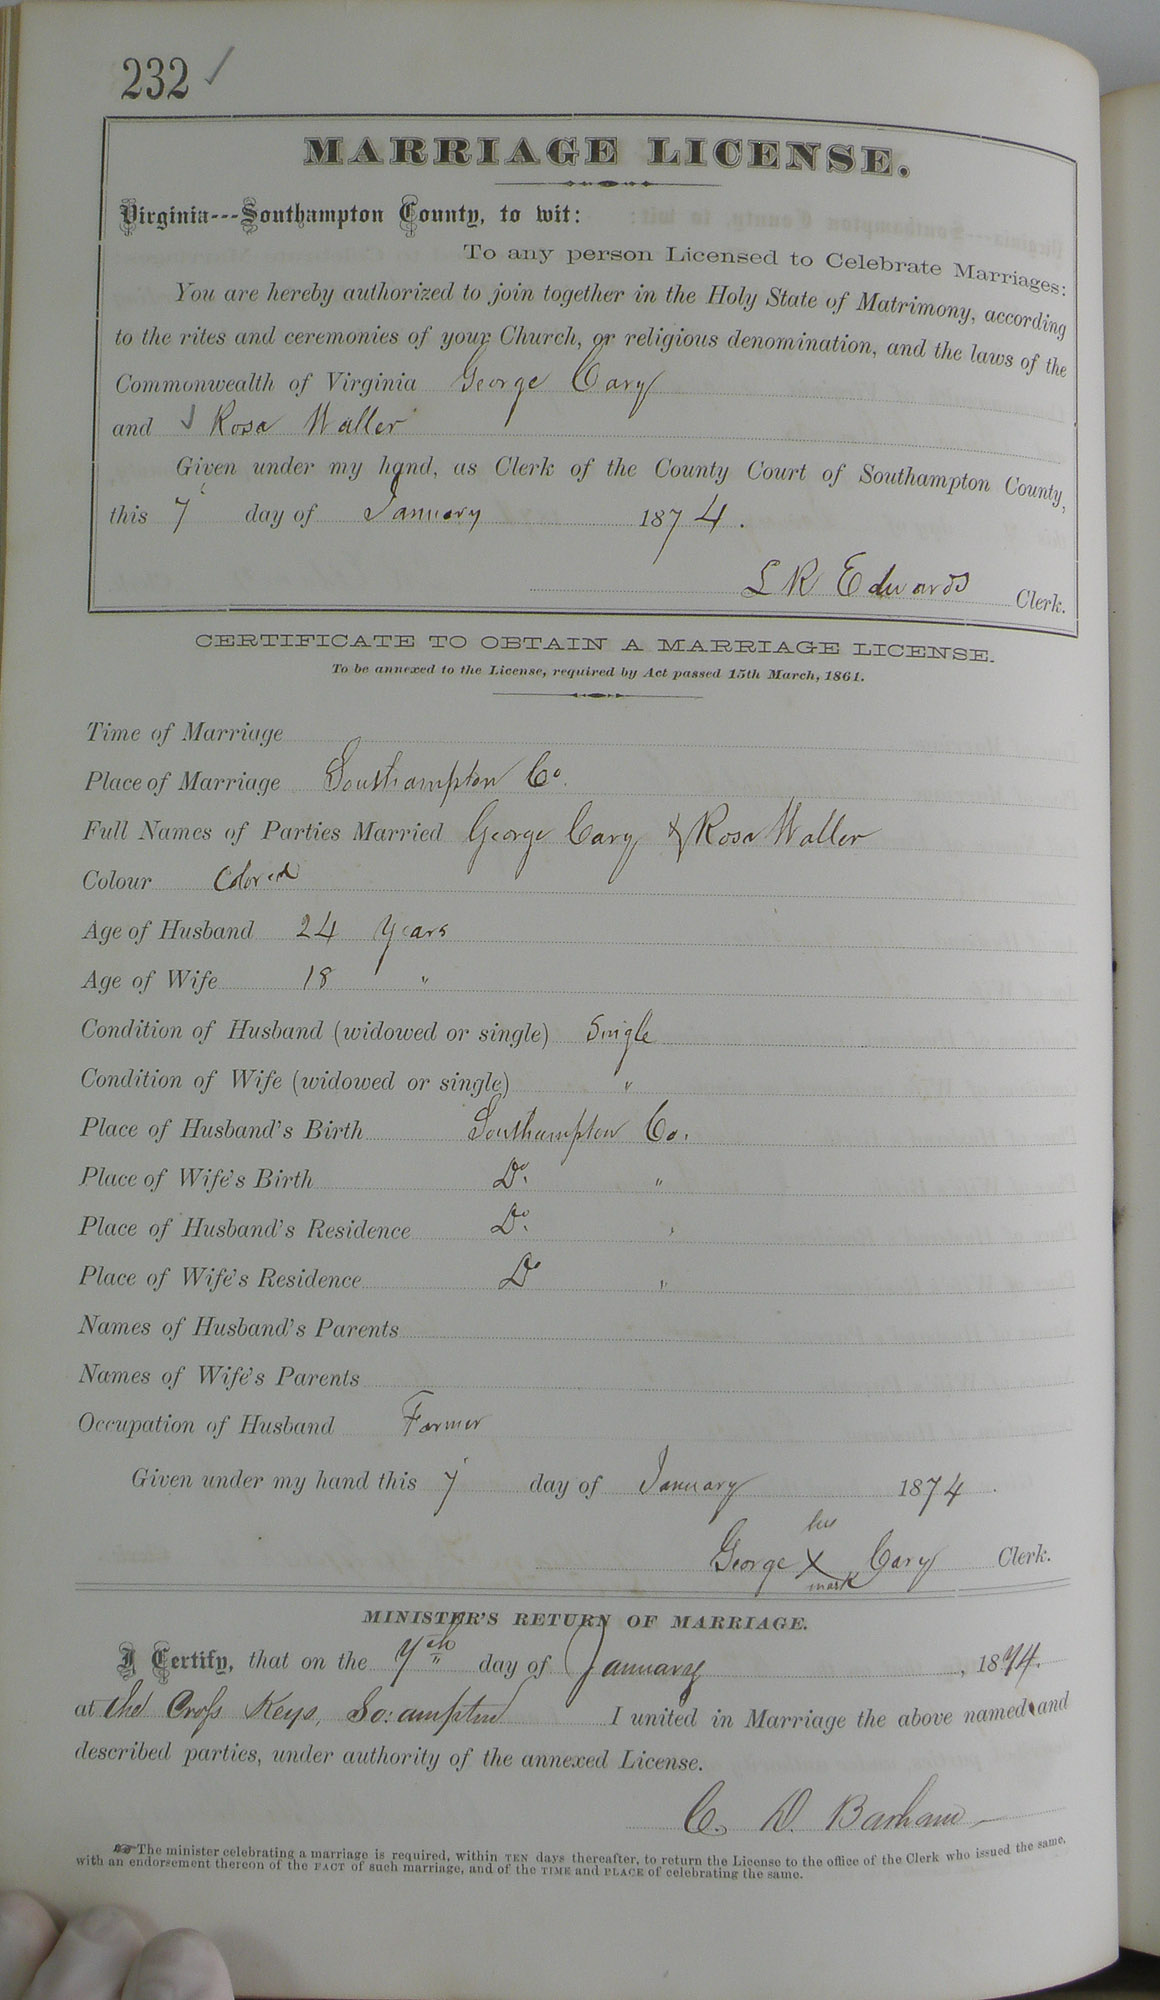 232 ✓
MARRIAGE LICENSE.
Virginia---Southampton County, to wit:
To any person Licensed to Celebrate Marriages:
You are hereby authorized to join together in the Holy State of Matrimony, according
to the rites and ceremonies of your Church, or religious denomination, and the laws of the
Commonwealth of Virginia George Cary
and ✓ Rosa Waller
Given under my hand, as Clerk of the County Court of Southampton County,
this 7 day of January 1874.
L R Edwards Clerk.
CERTIFICATE TO OBTAIN A MARRIAGE LICENSE.
To be annexed to the License, required by Act passed 15th March, 1861.
Time of Marriage
Place of Marriage Southampton Co.
Full Names of Parties Married George Cary & Rosa Waller
Colour Colored
Age of Husband 24 years
Age of Wife 18 "
Condition of Husband (widowed or single) Single
Condition of Wife (widowed or single) "
Place of Husband's Birth Southampton Co.
Place of Wife's Birth Do. "
Place of Husband's Residence Do. "
Place of Wife's Residence Do "
Names of Husband's Parents
Names of Wife's Parents
Occupation of Husband Farmer
Given under my hand this 7 day of January 1874
his
George X Cary Clerk.
mark
MINISTER'S RETURN OF MARRIAGE.
I Certify, that on the 7th day of January, 1874.
at the Cross Keys, So:ampton I united in Marriage the above named and
described parties, under authority of the annexed License.
C. D. Barham
☞ The minister celebrating a marriage is required, within TEN days thereafter, to return the License to the office of the Clerk who issued the same,
with an endorsement thereon of the FACT of such marriage, and of the TIME and PLACE of celebrating the same.